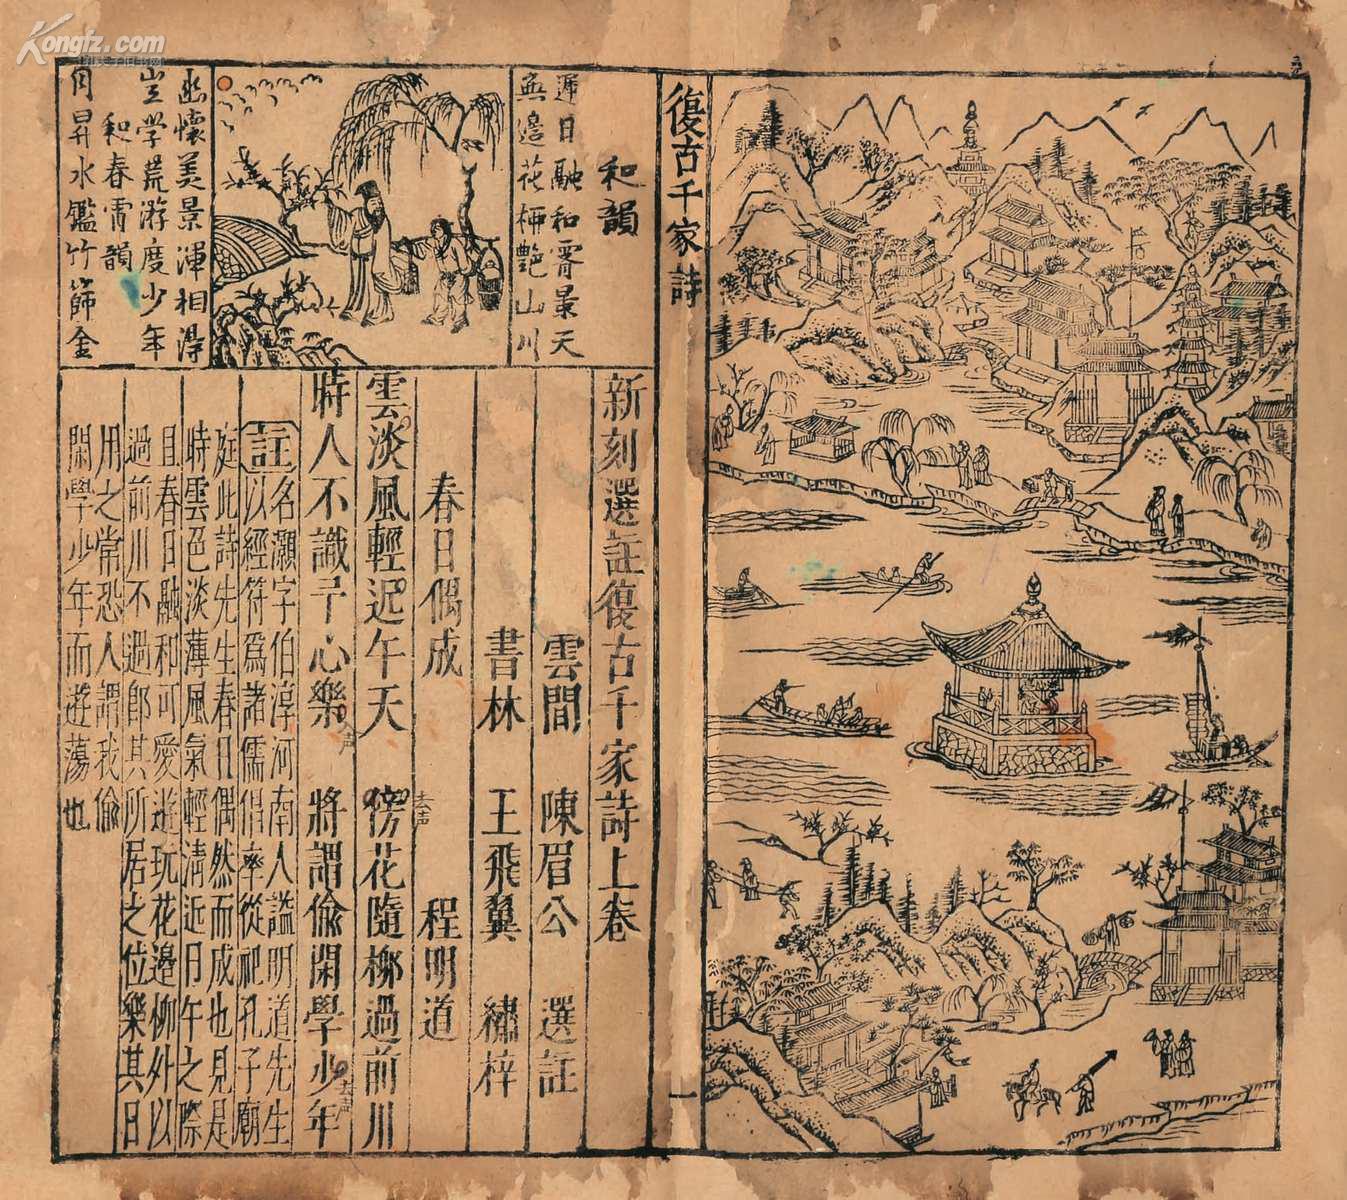 Kongfz.com
復古千家詩
一
和韻
遲日融和霽景天
無邊花柳艷山川
幽懷美景渾相得
豈學荒游度少年
和春宵韻
月昇水鑑竹篩金
新刻選註復古千家詩上卷
雲間　陳眉公　選註
書林　王飛翼　繡梓
春日偶成　程明道
雲淡風輕近午天　傍花隨柳過前川
去声
時人不識予心樂　將謂偷閑學少年
声
去声
註名灝字伯淳河南人諡明道先生
以經符爲諸儒倡率從祀孔子廟
庭此詩先生春日偶然而成也見是
時雲色淡薄風氣輕淸近日午之際
且春日融和可愛遊玩花邉柳外以
過前川不過郎其所居之位樂其日
用之常恐人謂我偷
閑學少年而遊蕩也